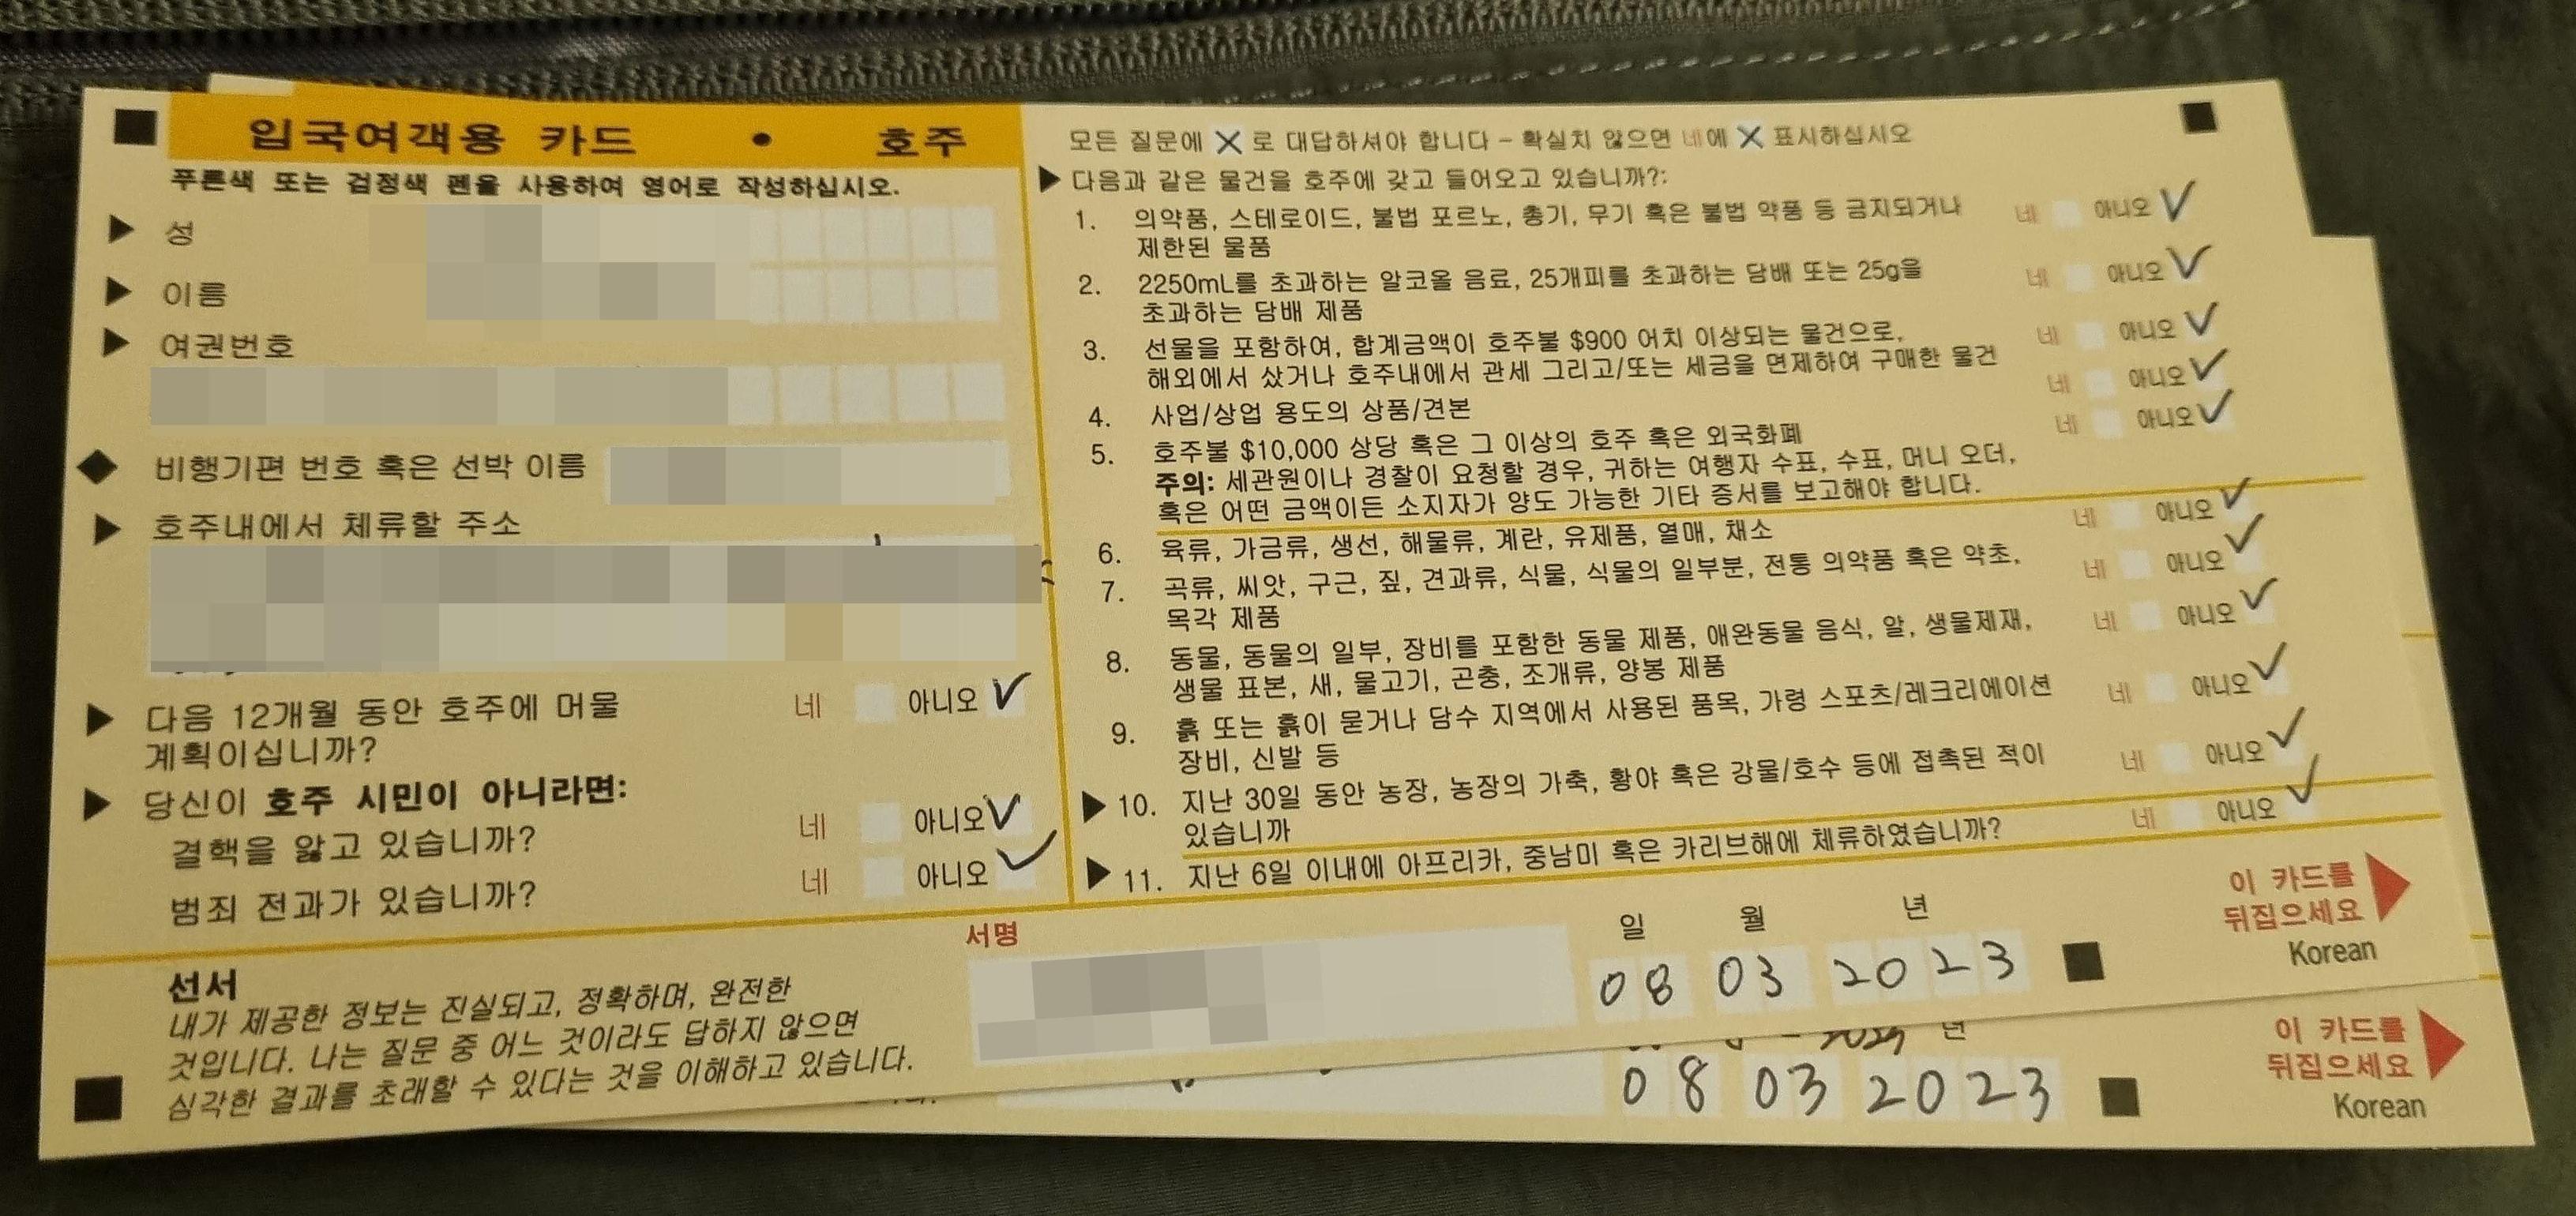 입국여객용 카드 • 호주
푸른색 또는 검정색 펜을 사용하여 영어로 작성하십시오.
성
이름
여권번호
비행기편 번호 혹은 선박 이름
호주내에서 체류할 주소
다음 12개월 동안 호주에 머물 네 아니오 ✓
계획이십니까?
당신이 호주 시민이 아니라면:
결핵을 앓고 있습니까? 네 아니오 ✓
범죄 전과가 있습니까? 네 아니오 ✓
모든 질문에 X 로 대답하셔야 합니다 – 확실치 않으면 네에 X 표시하십시오
다음과 같은 물건을 호주에 갖고 들어오고 있습니까?:
1. 의약품, 스테로이드, 불법 포르노, 총기, 무기 혹은 불법 약품 등 금지되거나 네 아니오 ✓
제한된 물품
2. 2250mL를 초과하는 알코올 음료, 25개피를 초과하는 담배 또는 25g을 네 아니오 ✓
초과하는 담배 제품
3. 선물을 포함하여, 합계금액이 호주불 $900 어치 이상되는 물건으로, 네 아니오 ✓
해외에서 샀거나 호주내에서 관세 그리고/또는 세금을 면제하여 구매한 물건
4. 사업/상업 용도의 상품/견본 네 아니오 ✓
5. 호주불 $10,000 상당 혹은 그 이상의 호주 혹은 외국화폐 네 아니오 ✓
주의: 세관원이나 경찰이 요청할 경우, 귀하는 여행자 수표, 수표, 머니 오더,
혹은 어떤 금액이든 소지자가 양도 가능한 기타 증서를 보고해야 합니다.
6. 육류, 가금류, 생선, 해물류, 계란, 유제품, 열매, 채소 네 아니오 ✓
7. 곡류, 씨앗, 구근, 짚, 견과류, 식물, 식물의 일부분, 전통 의약품 혹은 약초, 네 아니오 ✓
목각 제품
8. 동물, 동물의 일부, 장비를 포함한 동물 제품, 애완동물 음식, 알, 생물제재, 네 아니오 ✓
생물 표본, 새, 물고기, 곤충, 조개류, 양봉 제품
9. 흙 또는 흙이 묻거나 담수 지역에서 사용된 품목, 가령 스포츠/레크리에이션 네 아니오 ✓
장비, 신발 등
10. 지난 30일 동안 농장, 농장의 가축, 황야 혹은 강물/호수 등에 접촉된 적이 네 아니오 ✓
있습니까
11. 지난 6일 이내에 아프리카, 중남미 혹은 카리브해에 체류하였습니까? 네 아니오 ✓
선서
내가 제공한 정보는 진실되고, 정확하며, 완전한
것입니다. 나는 질문 중 어느 것이라도 답하지 않으면
심각한 결과를 초래할 수 있다는 것을 이해하고 있습니다.
서명
일 월 년
08 03 2023
이 카드를
뒤집으세요
Korean
년
08 03 2023
이 카드를
뒤집으세요
Korean